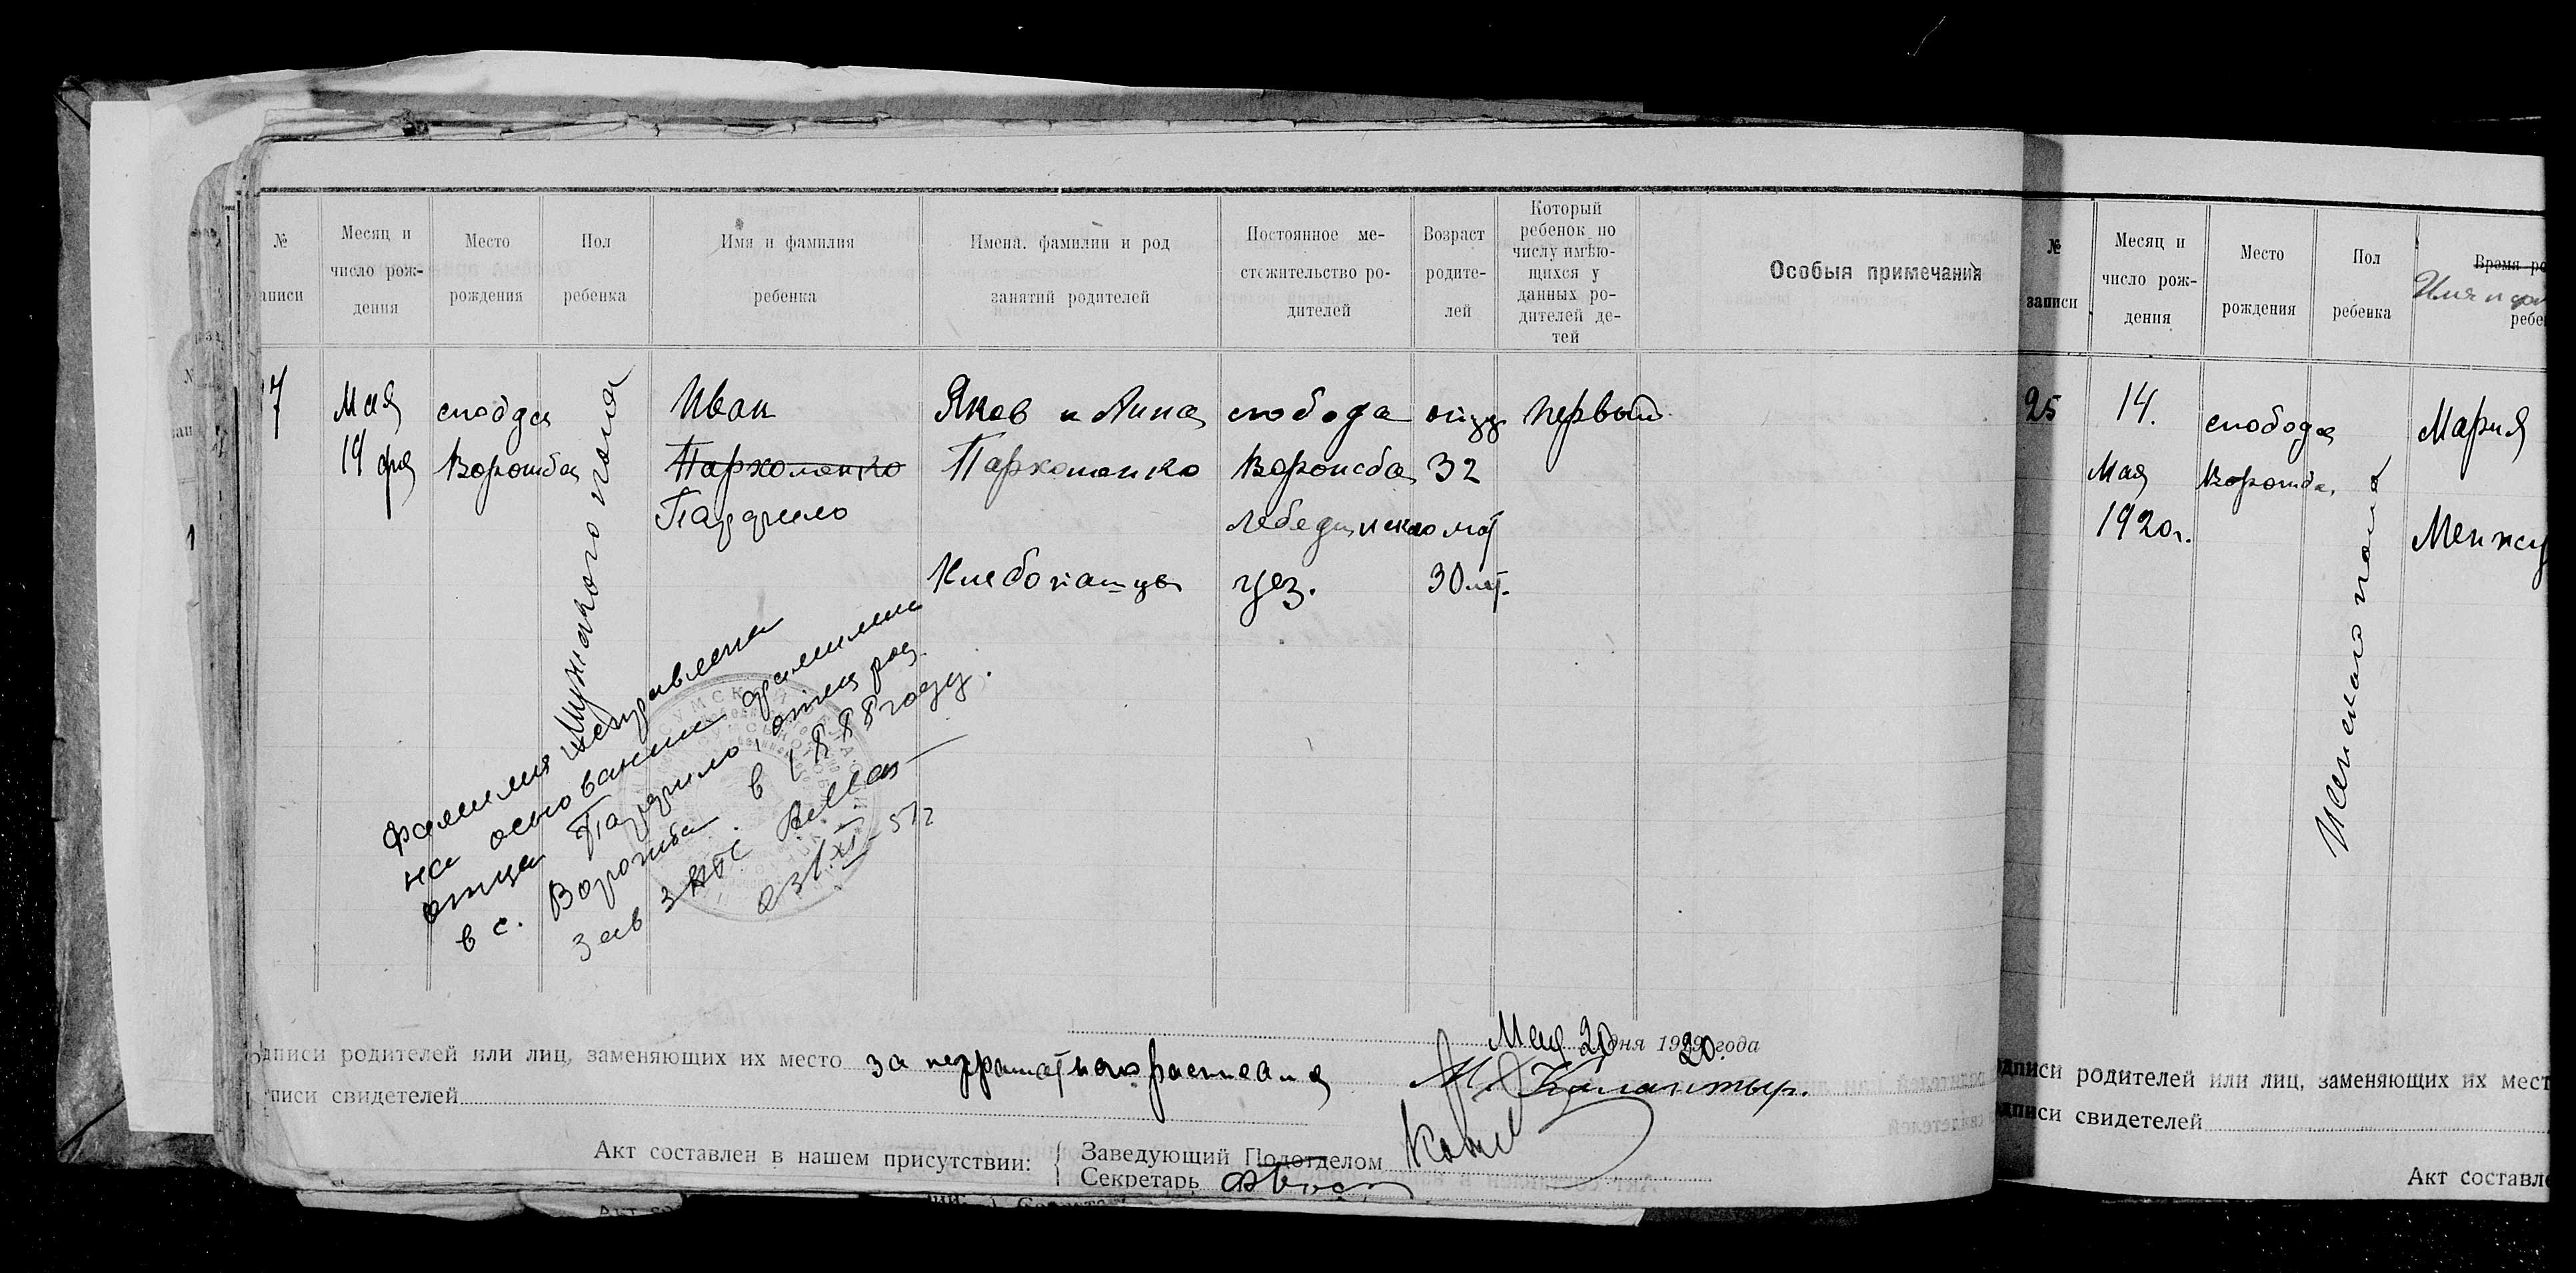 №
аписи
Месяц и
число рож-
дения
Место
рождения
Пол
ребенка
Имя и фамилия
ребенка
Имена, фамилии и род
занятий родителей
Постоянное ме-
стожительство ро-
дителей
Возраст
родите-
лей
Который
ребенок по
числу имѣю-
щихся у
данных ро-
дителей де-
тей
Особыя примечания
7
Мая
19 дня
слобода
Ворожба
Мужского пола
Иван
Пархоменко
Парфило
Яков и Анна
Пархоменко
Хлебопашцы
слобода
Ворожба
Лебединскаго
уез.
отцу
32
мат
30 лет.
Первый
Фамилия исправлена
на основании фамилии
отца Парфило, отец род.
в с. Ворожба в 1888 году.
Зав ЗАГС
23/XI-51г
Мая 20 дня 1920 года
одписи родителей или лиц, заменяющих их место за неграмотных расписался
М. Калантыр.
писи свидетелей
Акт составлен в нашем присутствии:
Заведующий Подотделом
Секретарь
№
записи
Месяц и
число рож-
дения
Место
рождения
Пол
ребенка
Время ро
Имя и фам
ребен
25
14.
Мая
1920г.
слобода
Ворожба.
Женского пола
Мария
одписи родителей или лиц, заменяющих их мест
одписи свидетелей
Акт составле